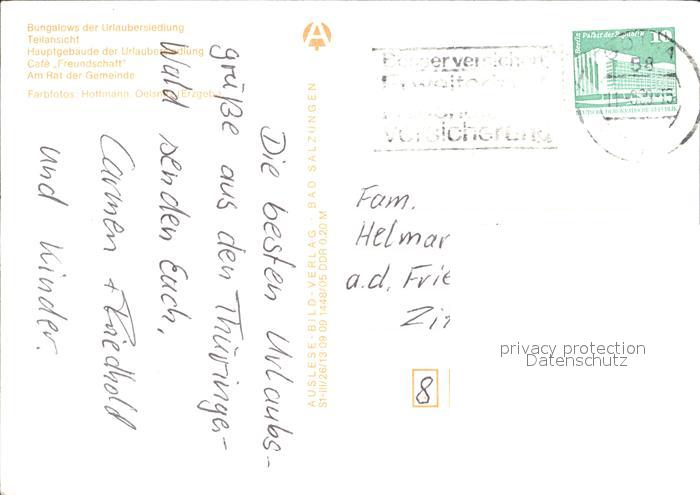 Bungalows der Urlaubersiedlung
Teilansicht
Hauptgebäude der Urlaubersiedlung
Café „Freundschaft"
Am Rat der Gemeinde
Farbfotos: Hoffmann, Oelsnitz/Erzgeb.
Die besten Urlaubs-
grüße aus den Thüringer-
Wald senden Euch,
Carmen + Friedhold
und Kinder.
AUSLESE-BILD-VERLAG · BAD SALZUNGEN
S1-III/26/13 09 09 1448/05 DDR 0,20 M
versicherung
Berlin, Palast der Republik
10
DEUTSCHE DEMOKRATISCHE REPUBLIK
58
Fam.
Helmar
a.d. Frie
Zi
8
privacy protection
Datenschutz